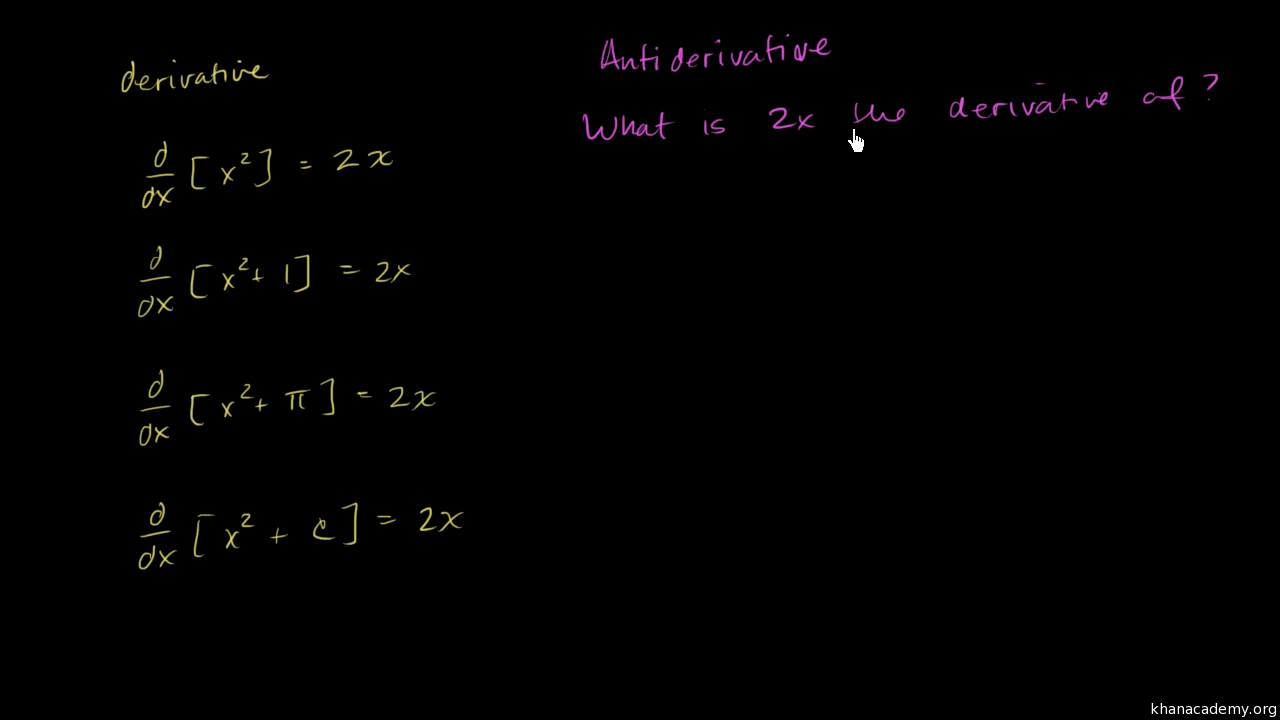 derivative
d/dx [x² ] = 2x
d/dx [x² + 1] = 2x
d/dx [x² + π] = 2x
d/dx [x² + c] = 2x
Antiderivative
What is 2x the derivative of?
khanacademy.org